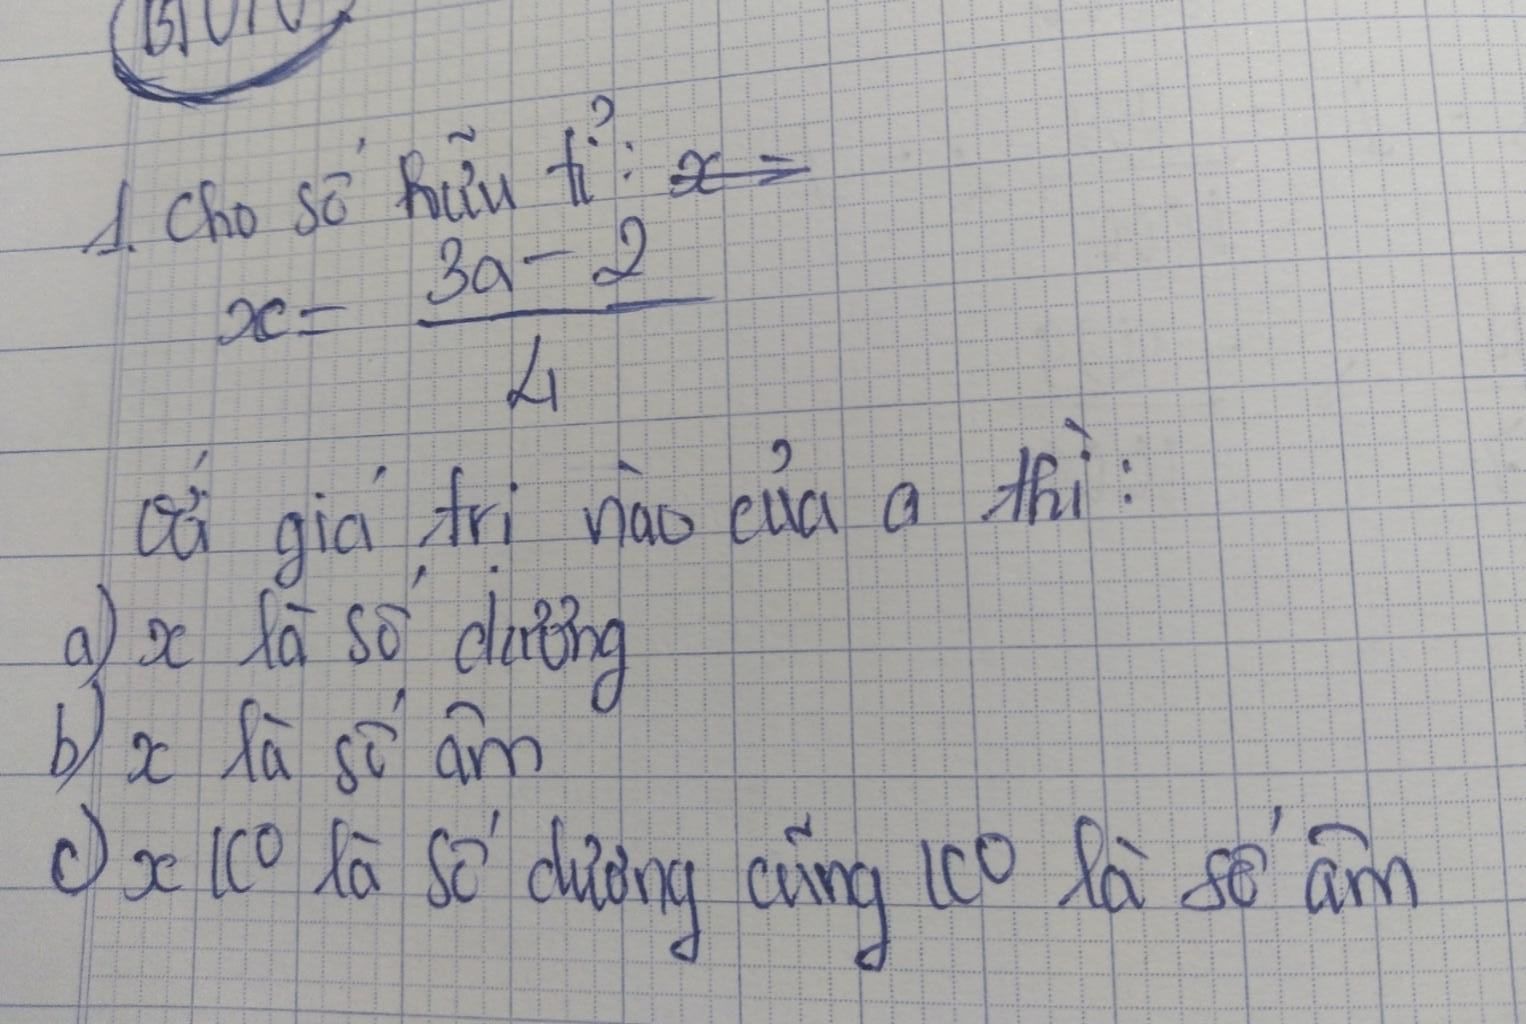 1. Cho số hữu tỉ: x =
x = \frac{3a - 2}{4}
giá trị nào của a thì:
a) x là số dương
b) x là số âm
c) x K° là số dương cũng K° là số âm